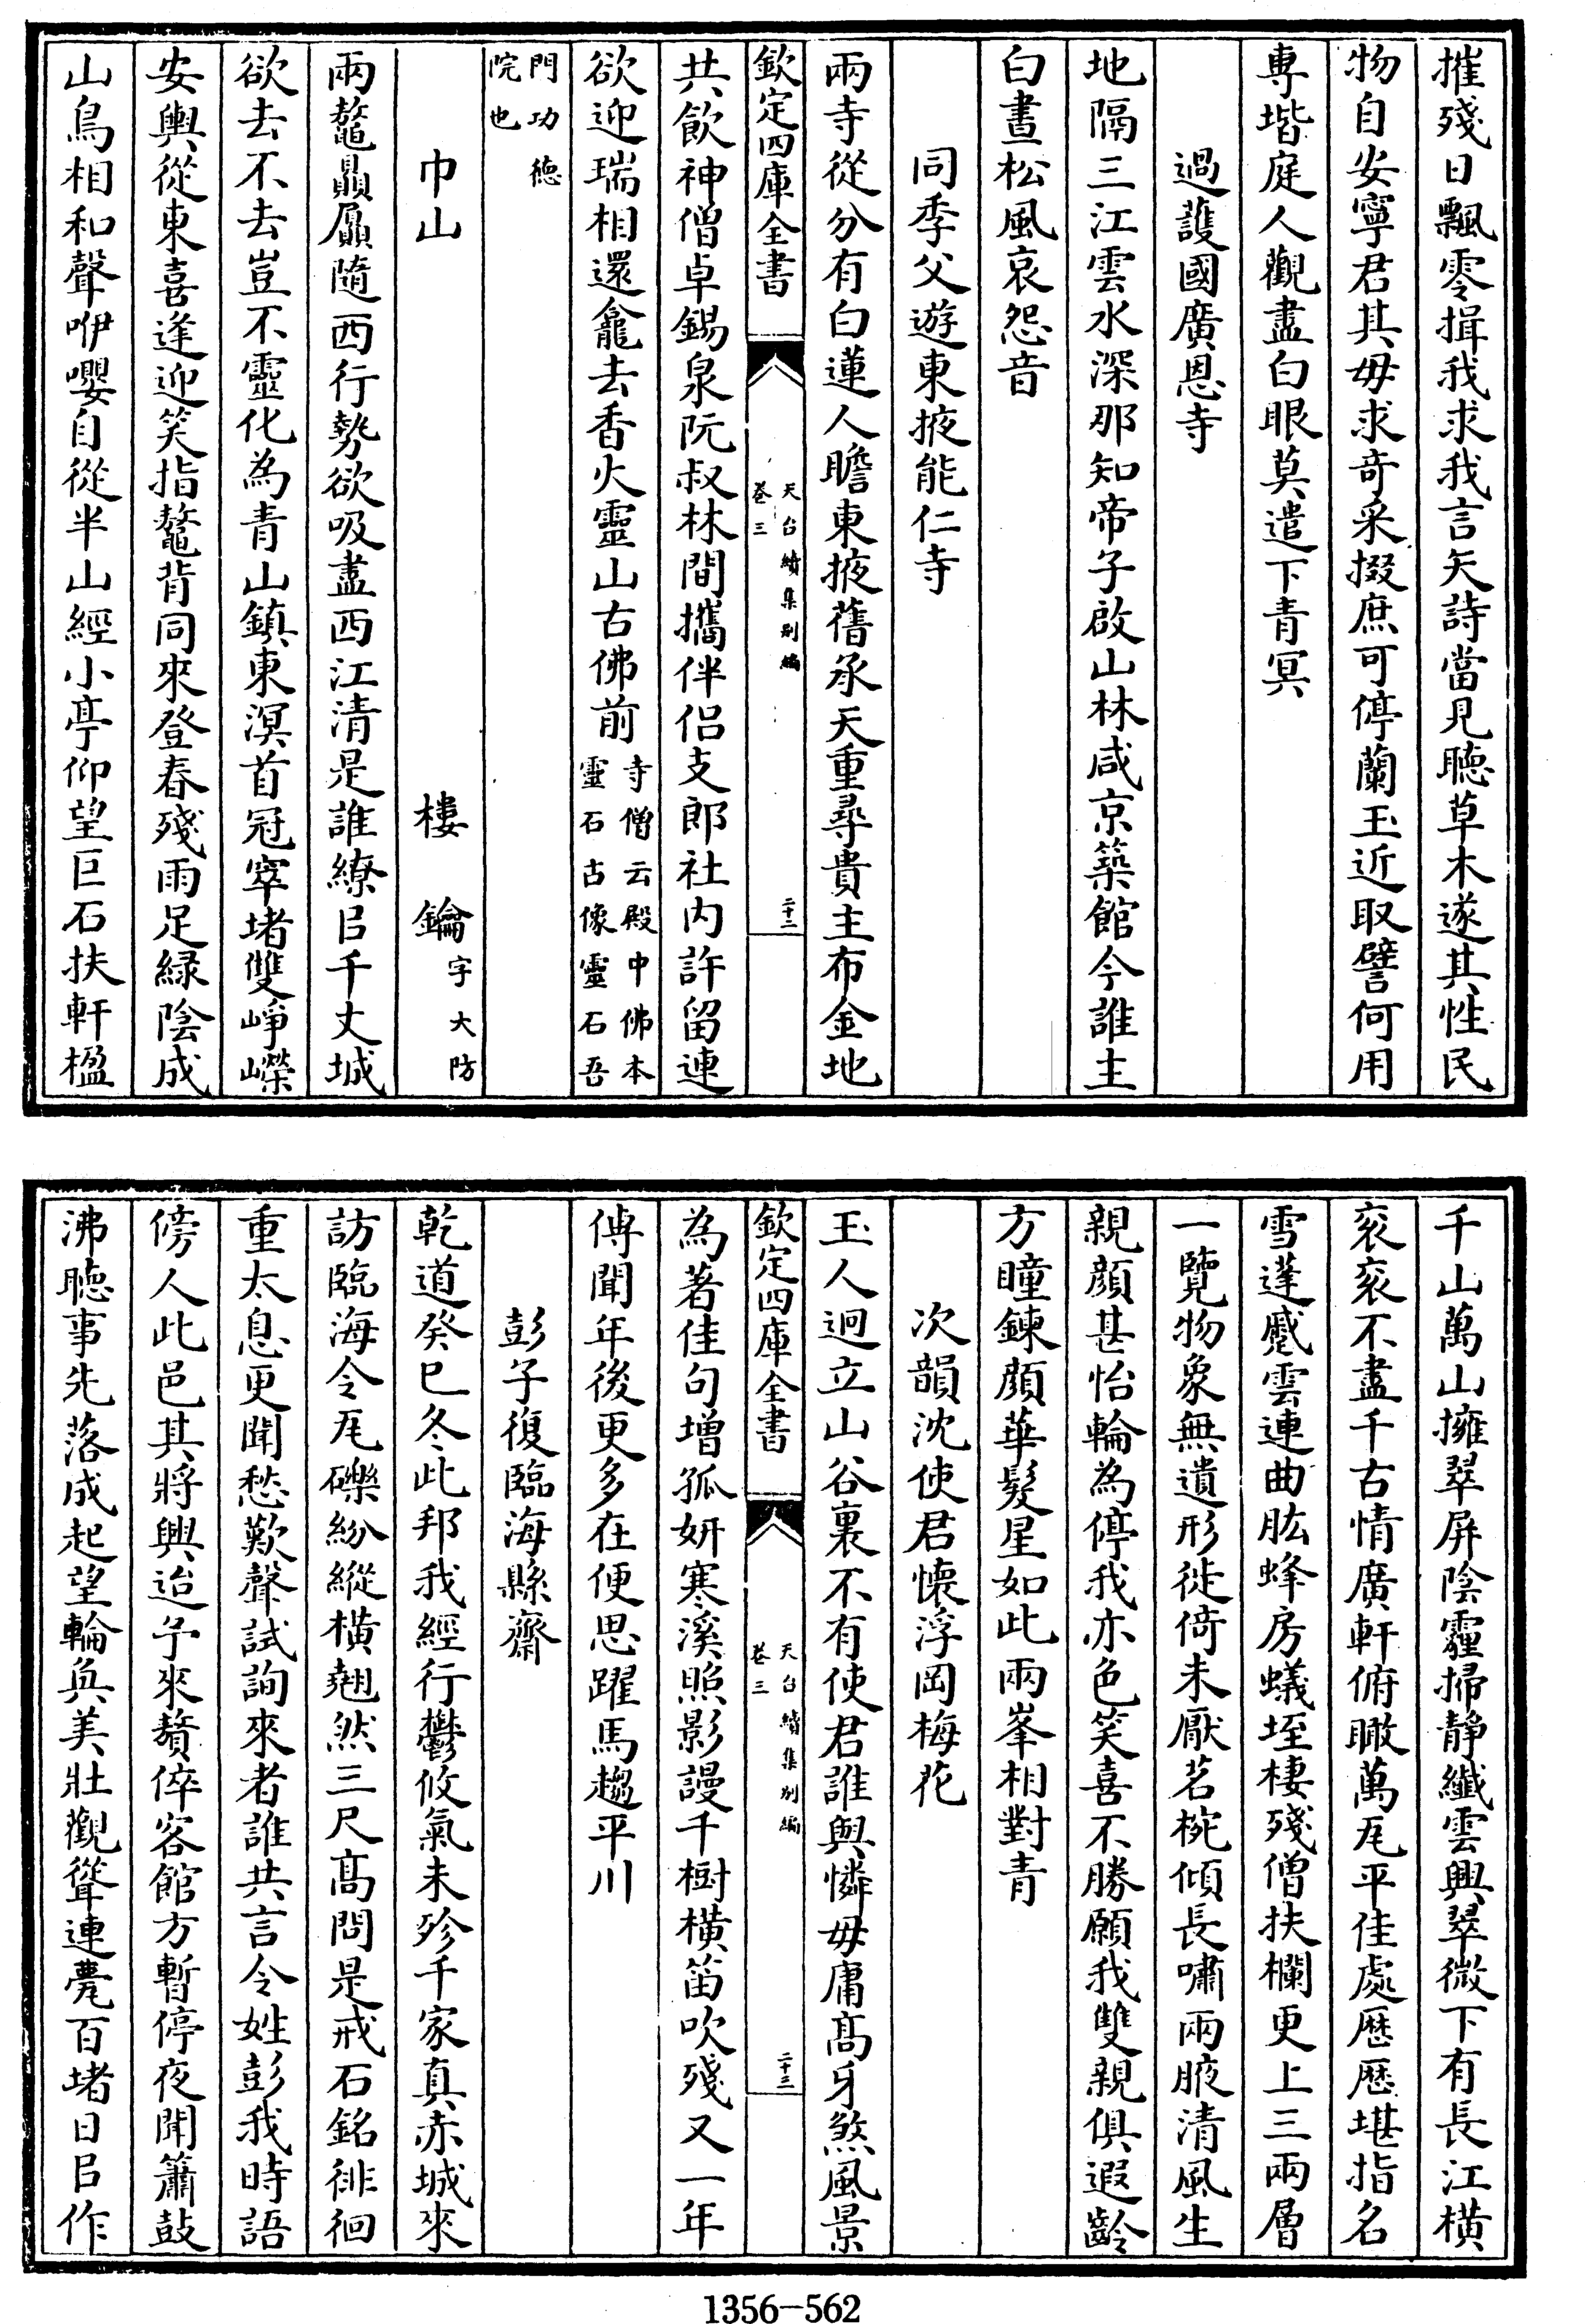 摧殘日飄零揖我求我言矢詩當見聽草木遂其性民
物自安寧君其毋求奇采掇庶可停蘭玉近取譬何用
專堦庭人觀盡白眼莫遣下青冥
過護國廣恩寺
地隔三江雲水深那知帝子啟山林咸京築館今誰主
白晝松風哀怨音
同季父遊東掖能仁寺
兩寺從分有白蓮人瞻東掖舊承天重尋貴主布金地
欽定四庫全書
天台續集別編
卷三
二十二
共飲神僧卓錫泉阮叔林間攜伴侣支郎社内許留連
欲迎瑞相還龕去香火靈山古佛前寺僧云殿中佛本
靈石古像靈石吾
門功德
院也
巾山
樓鑰字大防
兩鼇贔屭隨西行勢欲吸盡西江清是誰繚㠯千丈城
欲去不去豈不靈化為青山鎮東溟首冠窣堵雙崢嶸
安輿從東喜逢迎笑指鼇背同來登春殘雨足緑陰成
山鳥相和聲咿嚶自從半山經小亭仰望巨石扶軒楹
千山萬山擁翠屏陰霾掃靜纎雲興翠微下有長江橫
衮衮不盡千古情廣軒俯瞰萬瓦平佳處歴歴堪指名
雪蓬蹙雲連曲肱蜂房蟻垤棲殘僧扶欄更上三兩層
一覽物象無遺形徙倚未厭茗椀傾長嘯兩腋清風生
親顔甚怡輪為停我亦色笑喜不勝願我雙親俱遐齡
方瞳鍊顔華髮星如此兩峯相對青
次韻沈使君懷浮岡梅花
玉人迥立山谷裏不有使君誰與憐毋庸髙牙煞風景
欽定四庫全書
天台續集別編
卷三
二十三
為著佳句增孤妍寒溪照影謾千樹橫笛吹殘又一年
傳聞年後更多在便思躍馬趨平川
彭子復臨海縣齋
乾道癸巳冬此邦我經行鬱攸氣未殄千家真赤城來
訪臨海令瓦礫紛縱橫翹然三尺髙問是戒石銘徘徊
重太息更聞愁歎聲試詢來者誰共言令姓彭我時語
傍人此邑其將興迨予來贅倅客館方暫停夜聞簫鼓
沸聴事先落成起望輪奐美壯觀聳連甍百堵日㠯作
1356-562